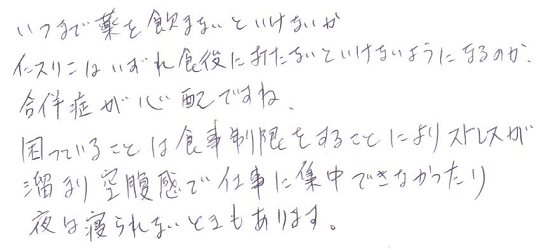 いつまで薬を飲まないといけないか
インスリンはいずれ食後に打たないといけないようになるのか、
合併症が心配ですね、
困っていることは食事制限をすることによりストレスが
溜まり空腹感で仕事に集中できなかったり
夜は寝られないときもあります。